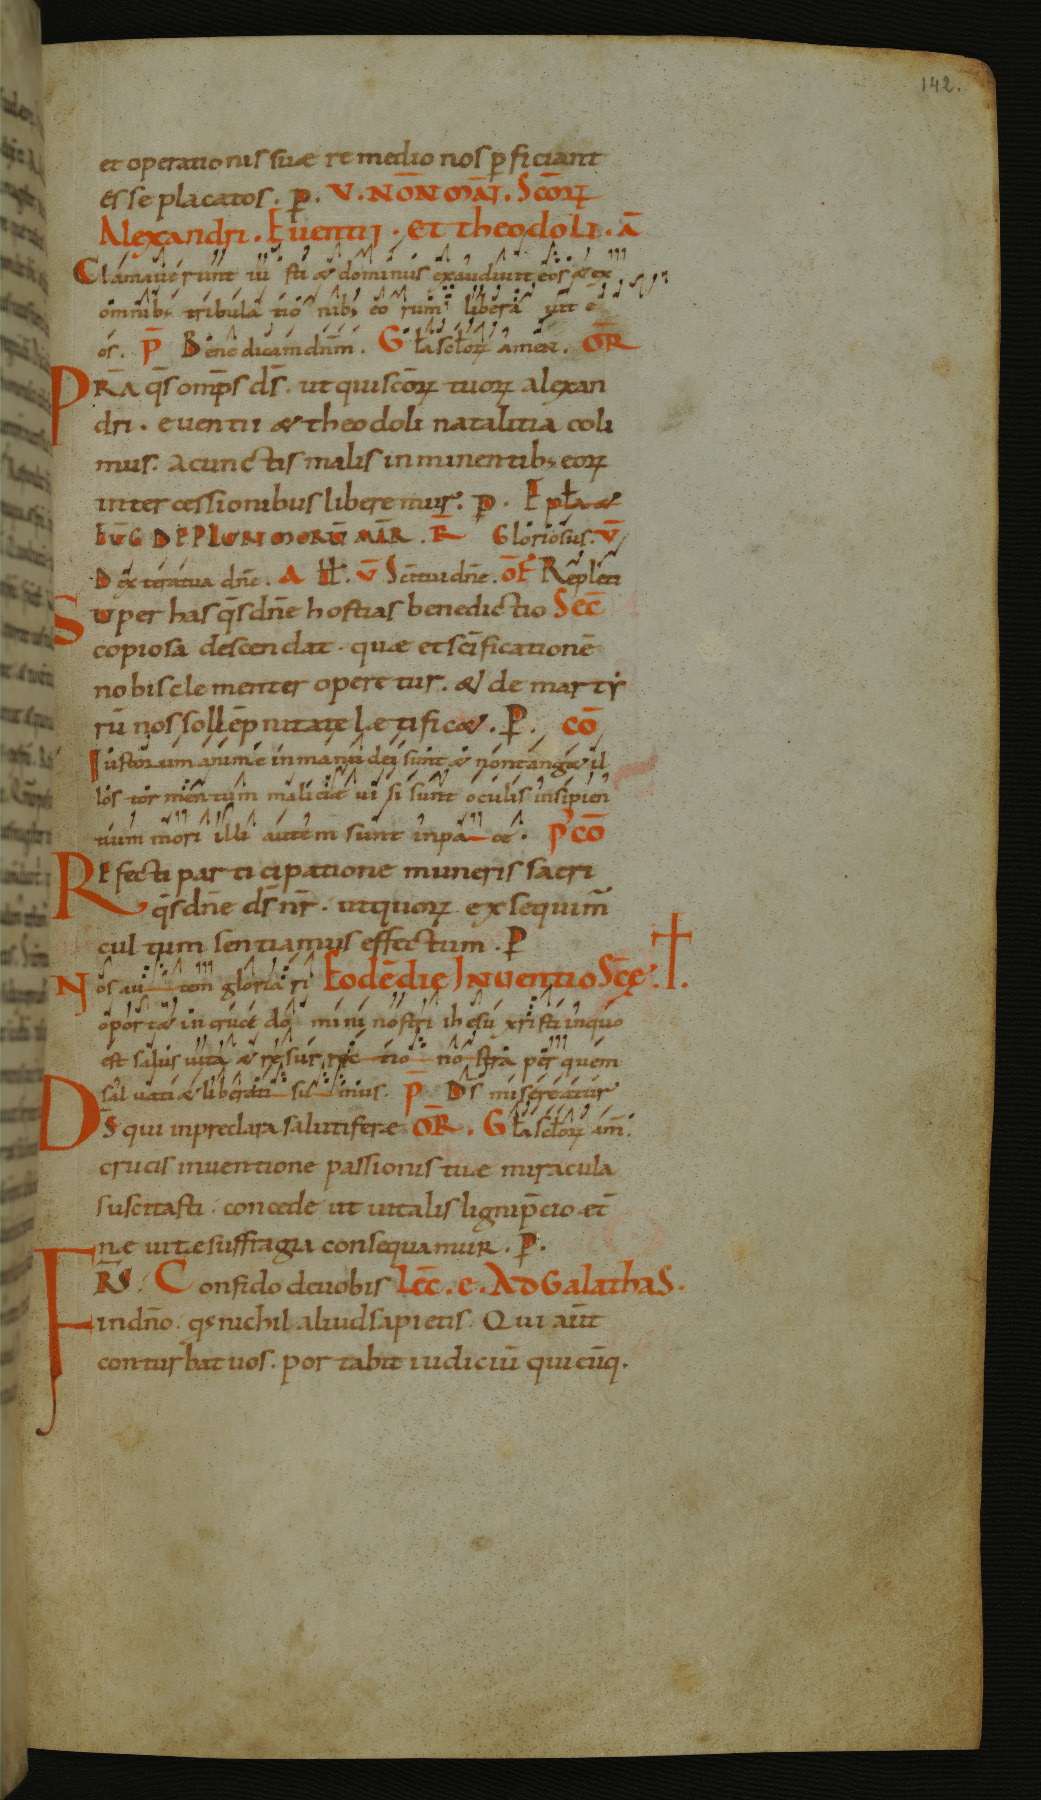 142.
et operationis suae remedio nos p̱ficiant
esse placatos. p̱. V. NōN MAI. Scōꝝ
Alexandri. Eventii. et theodoli. ā
Clamaverunt iusti & dominus exaudivit eos & ex
omnib; tribulationib; eorum liberavit e
os. P̄ Benedicam dnm̄. G ła sc̄łoꝝ amen. OR̄
PRA q̄s omp̄s ds̄. ut qui scōꝝ tuoꝝ alexan
dri. eventii & theodoli natalitia coli
mus. a cunctis malis inminentib; eoꝝ
intercessionibus liberemur. p̱. Epła &
EVḠ DE PLURIMORŪ MĀR. R̄ Gloriosus. V̄
Dextera tua dn̄e. A ll̄. V̄ Sc̄i tui dn̄e. OF̄ Repleti
Super has q̄s dn̄e hostias benedictio Sec̄
copiosa descendat. quae et sc̄ificationē
nobis clementer operetur. & de martỳ
rū nos sollēpnitate laetific&. P̱. CŌ
Iustorum animae in manu dei sunt & non tang& il
los tormentum maliciae visi sunt oculis insipien
tium mori illi autem sunt in pace. P̄ CŌ
Refecti participatione muneris sacri
q̄s dn̄e ds̄ nr̄. ut quoꝝ exsequim̄
cultum sentiamus effectum. P̱
Nos autem gloriari Eodē die Inventio Scē. †.
oport& in cruce domini nostri ihesu xristi in quo
est salus vita & resurrectio nostra per quem
salvati & liberati sumus. P̄ Ds̄ misereatur
Ds̄ qui in preclara salutiferae OR̄. G ła sc̄łoꝝ am̄.
crucis inventione passionis tuae miracula
suscitasti. concede ut vitalis ligni p̄cio et̄
nae vitae suffragia consequamur. P̱.
FRS̄. Confido de vobis Lec̄. e. AD GalathaS.
in dn̄o. q̄s nichil aliud sapietis. Qui aūt
conturbat vos. portabit iudiciū quicūq.